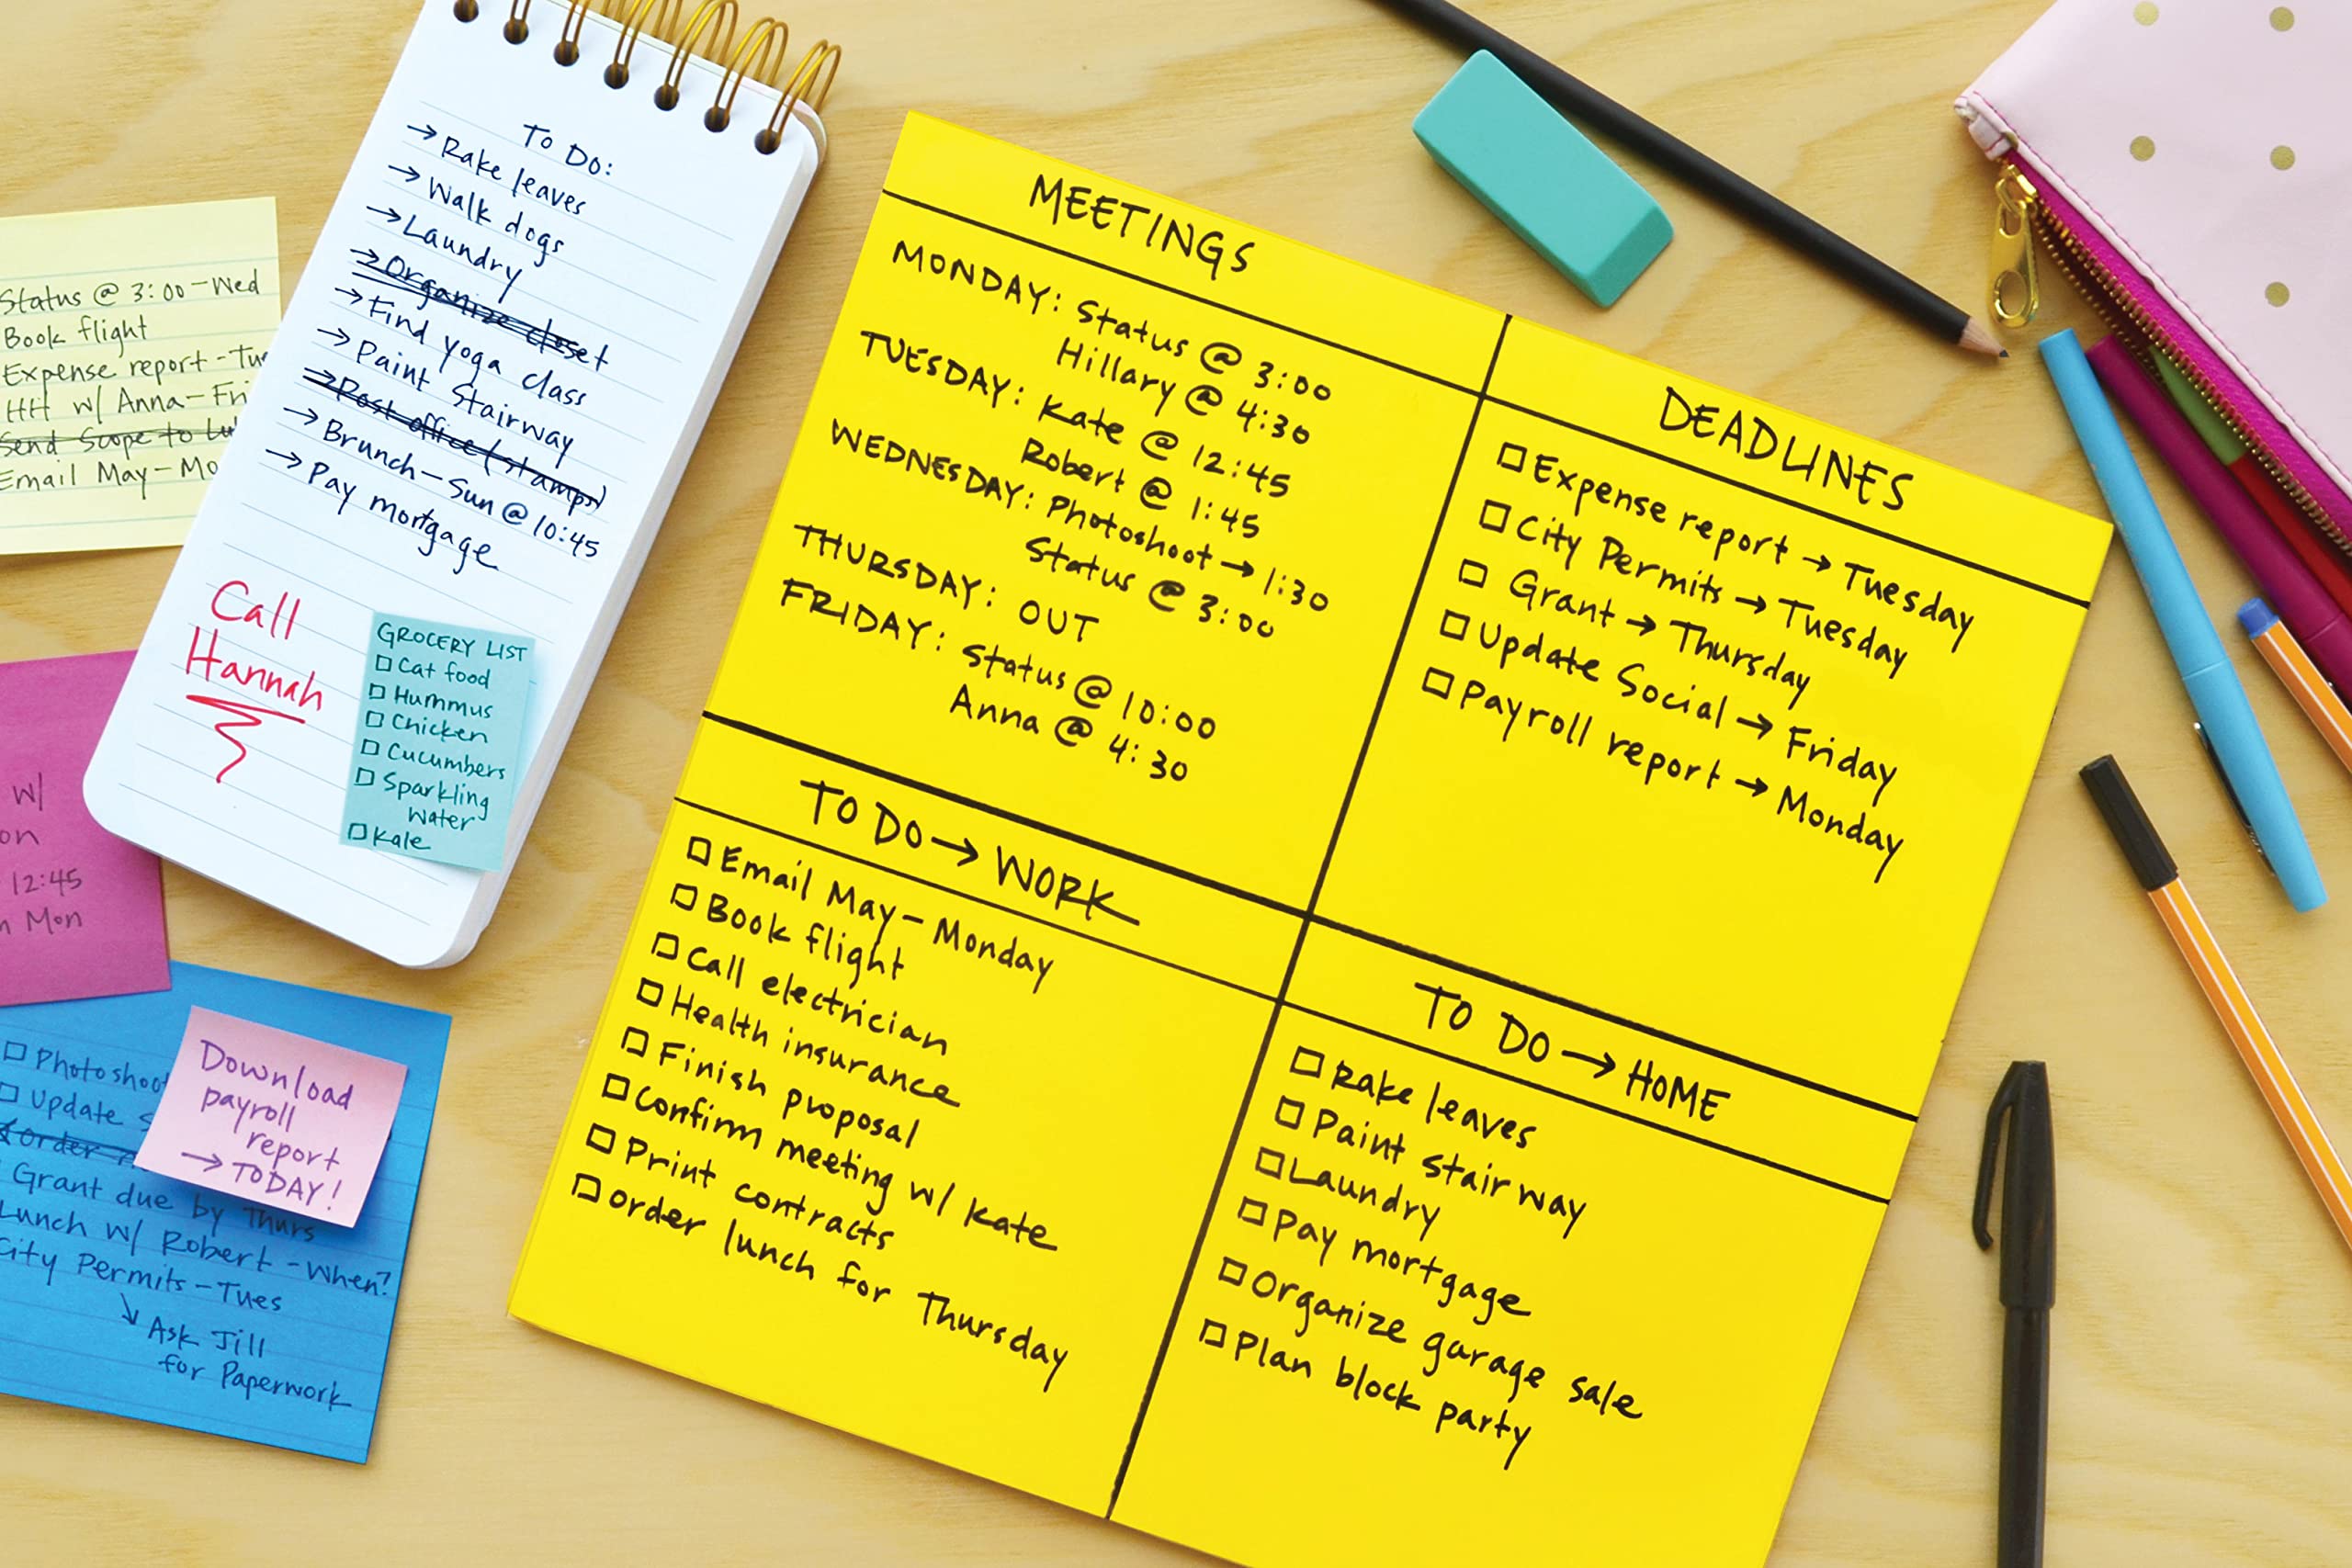 Status @ 3:00 - Wed
Book flight
Expense report - Tue
HH w/ Anna - Fri
Send Scope to
Email May - Mo
To Do:
→ Rake leaves
→ Walk dogs
→ Laundry
→ Organize closet
→ Find yoga class
→ Paint Stairway
→ Post office (stamps)
→ Brunch - Sun @ 10:45
→ Pay mortgage
Call
Hannah
GROCERY LIST
☐ Cat food
☐ Hummus
☐ Chicken
☐ Cucumbers
☐ Sparkling
Water
☐ Kale
w/
on
12:45
Mon
☐ Photoshoot
☐ Update
Order
Grant due by Thurs
Lunch w/ Robert - When?
City Permits - Tues
↘ Ask Jill
for Paperwork
Download
payroll
report
→ TODAY!
MEETINGS
MONDAY: Status @ 3:00
Hillary @ 4:30
TUESDAY: Kate @ 12:45
Robert @ 1:45
WEDNESDAY: Photoshoot → 1:30
Status @ 3:00
THURSDAY: OUT
FRIDAY: Status @ 10:00
Anna @ 4:30
DEADLINES
☐ Expense report → Tuesday
☐ City Permits → Tuesday
☐ Grant → Thursday
☐ Update Social → Friday
☐ Payroll report → Monday
TO DO → WORK
☐ Email May - Monday
☐ Book flight
☐ Call electrician
☐ Health insurance
☐ Finish proposal
☐ Confirm meeting w/ Kate
☐ Print contracts
☐ Order lunch for Thursday
TO DO → HOME
☐ Rake leaves
☐ Paint stairway
☐ Laundry
☐ Pay mortgage
☐ Organize garage sale
☐ Plan block party